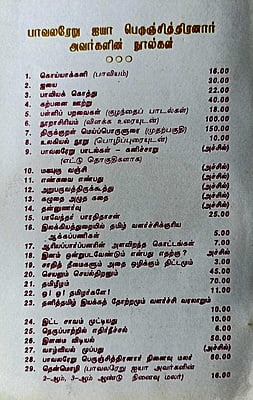 பாவலரேறு ஐயா பெருஞ்சித்திரனார்
அவர்களின் நூல்கள்
1. கொய்யாக்கனி (பாவியம்) 16.00
2. ஐயை 30.00
3. பாவியக் கொத்து 22.00
4. கற்பனை ஊற்று 40.00
5. பள்ளிப் பறவைகள் (குழந்தைப் பாடல்கள்) 18.00
6. நூறாசிரியம் (விளக்க உரையுடன்) 100.00
7. திருக்குறள் மெய்ப்பொருளுரை (முதற்பகுதி) 150.00
8. உலகியல் நூறு (பொழிப்புரையுடன்) 10.00
9. பாவலரேறு பாடல்கள் - கனிச்சாறு (அச்சில்)
(எட்டு தொகுதிகளாக)
10. மகபுகு வஞ்சி (அச்சில்)
11. எண்சுவை எண்பது (அச்சில்)
12. அறுபருவத்திருக்கூத்து (அச்சில்)
13. கழுதை அழுத கதை (அச்சில்)
14. தன்னுணர்வு (அச்சில்)
15. பாவேந்தர் பாரதிதாசன் 25.00
16. இலக்கியத்துறையில் தமிழ் வளர்ச்சிக்குரிய
ஆக்கப்பணிகள் 5.00
17. ஆரியப்பார்ப்பனரின் அளவிறந்த கொட்டங்கள் 7.00
18. இனம் ஒன்றுபடவேண்டும் என்பது எதற்கு? அச்சில்
19. சாதித் தீமைகளும் அதை ஒழிக்கும் திட்டமும் 3.00
20. செயலும் செயல்திறனும் 45.00
21. தமிழீழம் 70.00
22. ஓ! ஓ! தமிழர்களே! 11.00
23. தனித்தமிழ் இயக்கத் தோற்றமும் வளர்ச்சி வரலாறும்
10.00
24. இட்ட சாவம் முட்டியது 10.00
25. நெருப்பாற்றில் எதிர்நீச்சல் 6.00
26. இளமை விடியல் 50.00
27. வாழ்வியல் முப்பது (அச்சில்)
28. பாவலரேறு பெருஞ்சித்திரனார் நினைவு மலர் 60.00
29. தென்மொழி (பாவலரேறு ஐயா அவர்களின்
2-ஆம், 3-ஆம் ஆண்டு நினைவு மலர்) 16.00